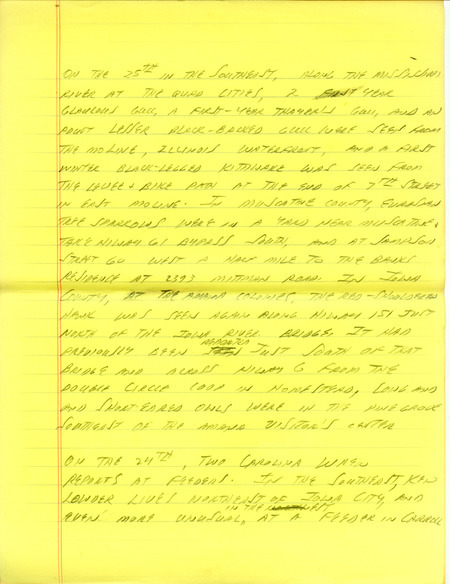 ON THE 25TH IN THE SOUTHEAST, ALONG THE MISSISSIPPI
RIVER AT THE QUAD CITIES, 2 YEAR
GLAUCOUS GULL, A FIRST-YEAR THAYER'S GULL, AND AN
ADULT LESSER BLACK-BACKED GULL WERE SEEN FROM
THE MOLINE, ILLINOIS WATERFRONT, AND A FIRST
WINTER BLACK-LEGGED KITTIWAKE WAS SEEN FROM
THE LEVEE & BIKE PATH AT THE END OF 7TH STREET
IN EAST MOLINE. IN MUSCATINE COUNTY, EURASIAN
TREE SPARROWS WERE IN A YARD NEAR MUSCATINE.
TAKE HIWAY 61 BYPASS SOUTH, AND AT SAMPSON
STREET GO WEST A HALF MILE TO THE BANKS
RESIDENCE AT 2393 MITTMAN ROAD. IN IOWA
COUNTY, AT THE AMANA COLONIES, THE RED-SHOULDERED
HAWK WAS SEEN AGAIN ALONG HIWAY 151 JUST
NORTH OF THE IOWA RIVER BRIDGE. IT HAD
PREVIOUSLY BEEN REPORTED JUST SOUTH OF THAT
BRIDGE AND ACROSS HIWAY 6 FROM THE
DOUBLE CIRCLE COOP IN HOMESTEAD, LONG AND
AND SHORT EARED OWLS WERE IN THE PINE GROVE
SOUTHEAST OF THE AMANA VISITOR'S CENTER
ON THE 24TH, TWO CAROLINA WREN
REPORTS AT FEEDERS. IN THE SOUTHEAST, KEN
LOWDER LIVES NORTHEAST OF IOWA CITY, AND
IN THE WEST,
EVEN MORE UNUSUAL, AT A FEEDER IN CARROLL